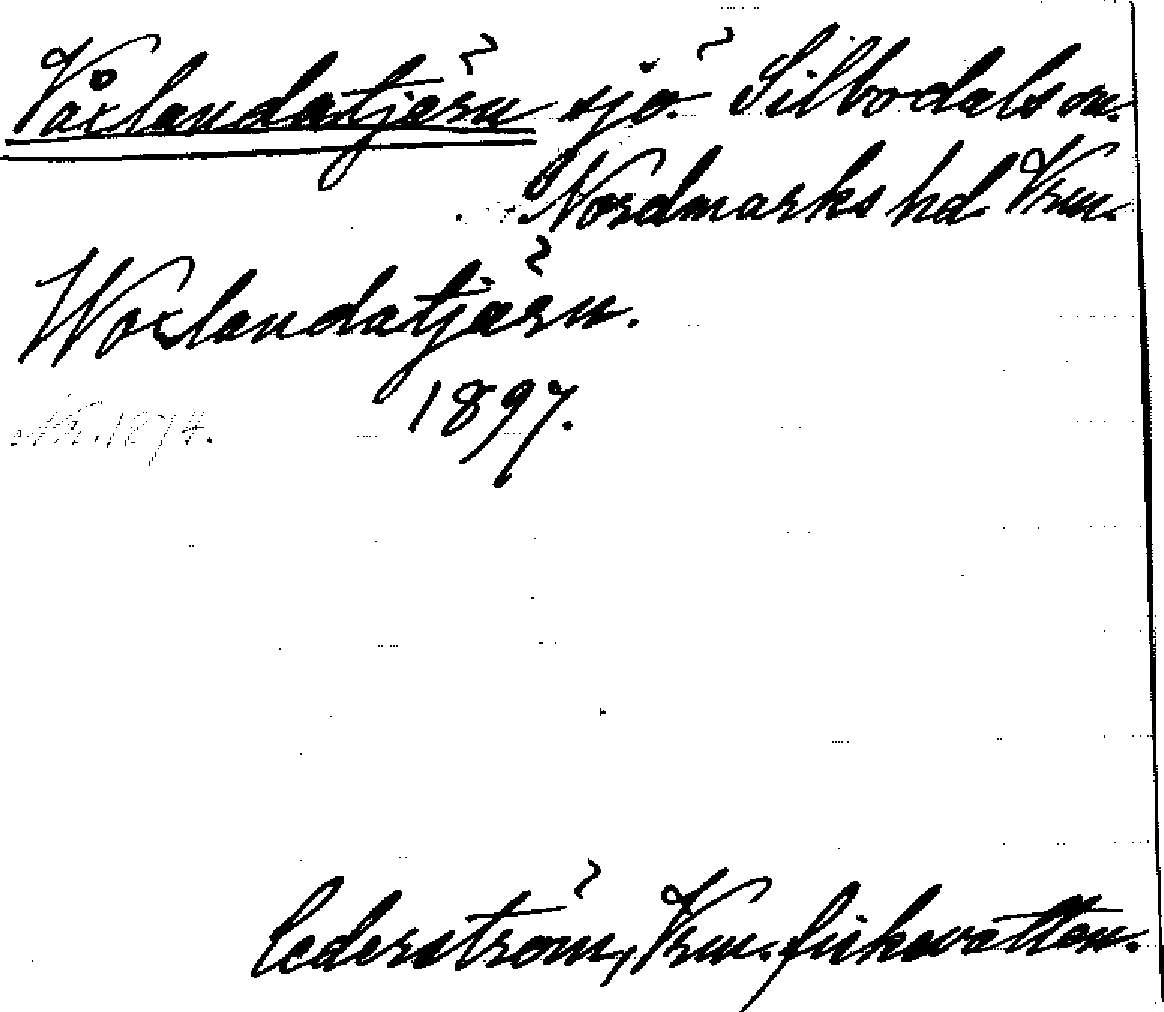 Våxlandatjärn sjö. Silbodals sn.
Nordmarks hd. Vrm.
Woxlandatjärn.
1897.
Nr. 1874.
Cederström, Vrm. fiskevatten.